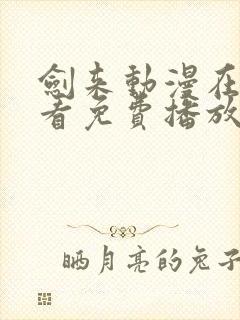 劍來動漫在
看免費播放
晒月亮的兔子